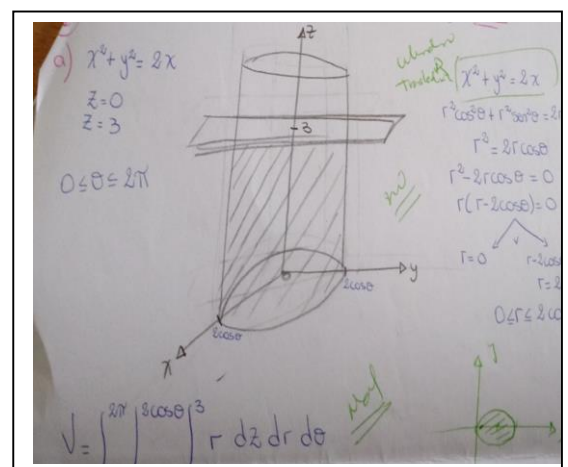 a) x² + y² = 2x
z = 0
z = 3
0 ≤ θ ≤ 2π
z
3
y
x
2cosθ
2cosθ
no
x² + y² = 2x
r²cos²θ + r²sen²θ = 2r
r² = 2r cosθ
r² - 2r cosθ = 0
r(r - 2cosθ) = 0
r = 0
r - 2cos
r = 2
0 ≤ r ≤ 2co
V = ∫ 2π ∫ 2cosθ ∫ 3 r dz dr dθ
Mal